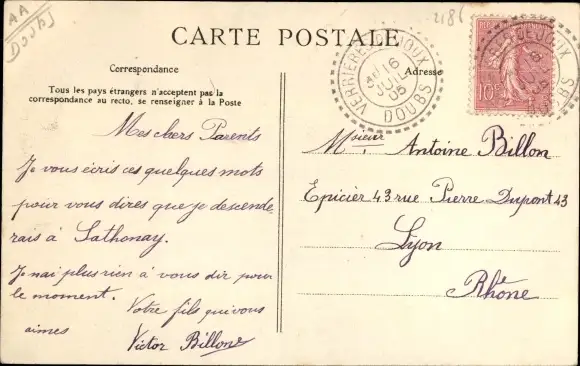 AA
Doubs
2186
CARTE POSTALE
Correspondance
Tous les pays étrangers n'acceptent pas la
correspondance au recto, se renseigner à la Poste
Mes chers Parents
Je vous écris ces quelques mots
pour vous dires que je descende
rais à Sathonay.
Je nai plus rien a vous dir pour
le moment.
Votre fils qui vous
aimes
Victor Billon
Adresse
VERRIERES DE JOUX
16
JUIL
05
DOUBS
10
Msieur. Antoine Billon
Epicièr 43 rue Pierre Dupont 43
Lyon
Rhône